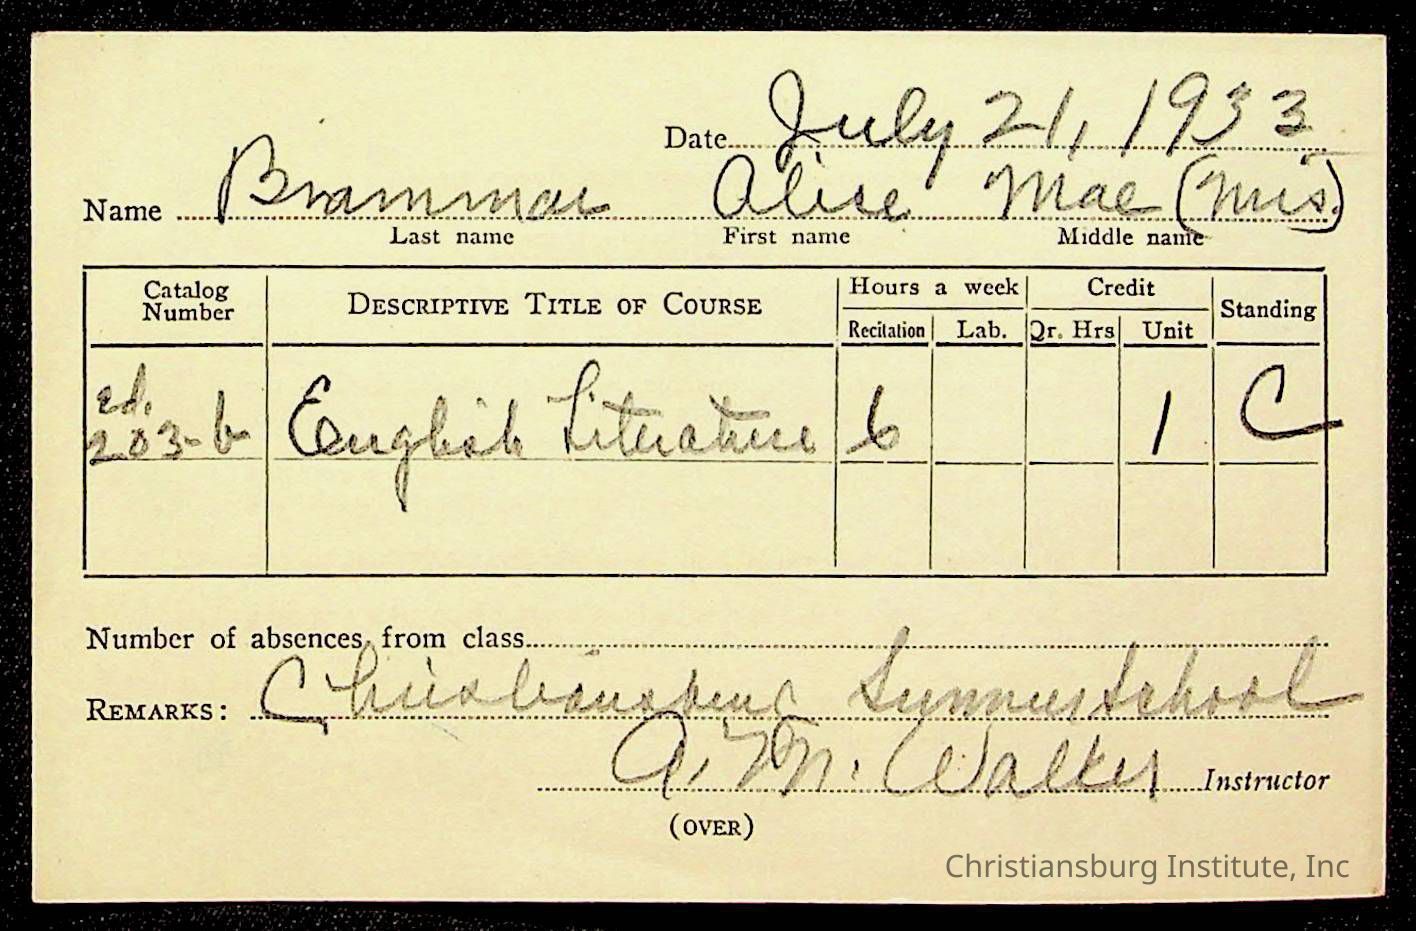 Date July 21, 1933
Name Brammar Alise Mae (Mrs.)
Last name First name Middle name
Catalog Number DESCRIPTIVE TITLE OF COURSE Hours a week Credit Standing
Recitation Lab. Qr. Hrs Unit
ed. 203-b English Literature 6 1 C
Number of absences from class
REMARKS: Christiansburg Summer School
A. M. Walker Instructor
(OVER)
Christiansburg Institute, Inc